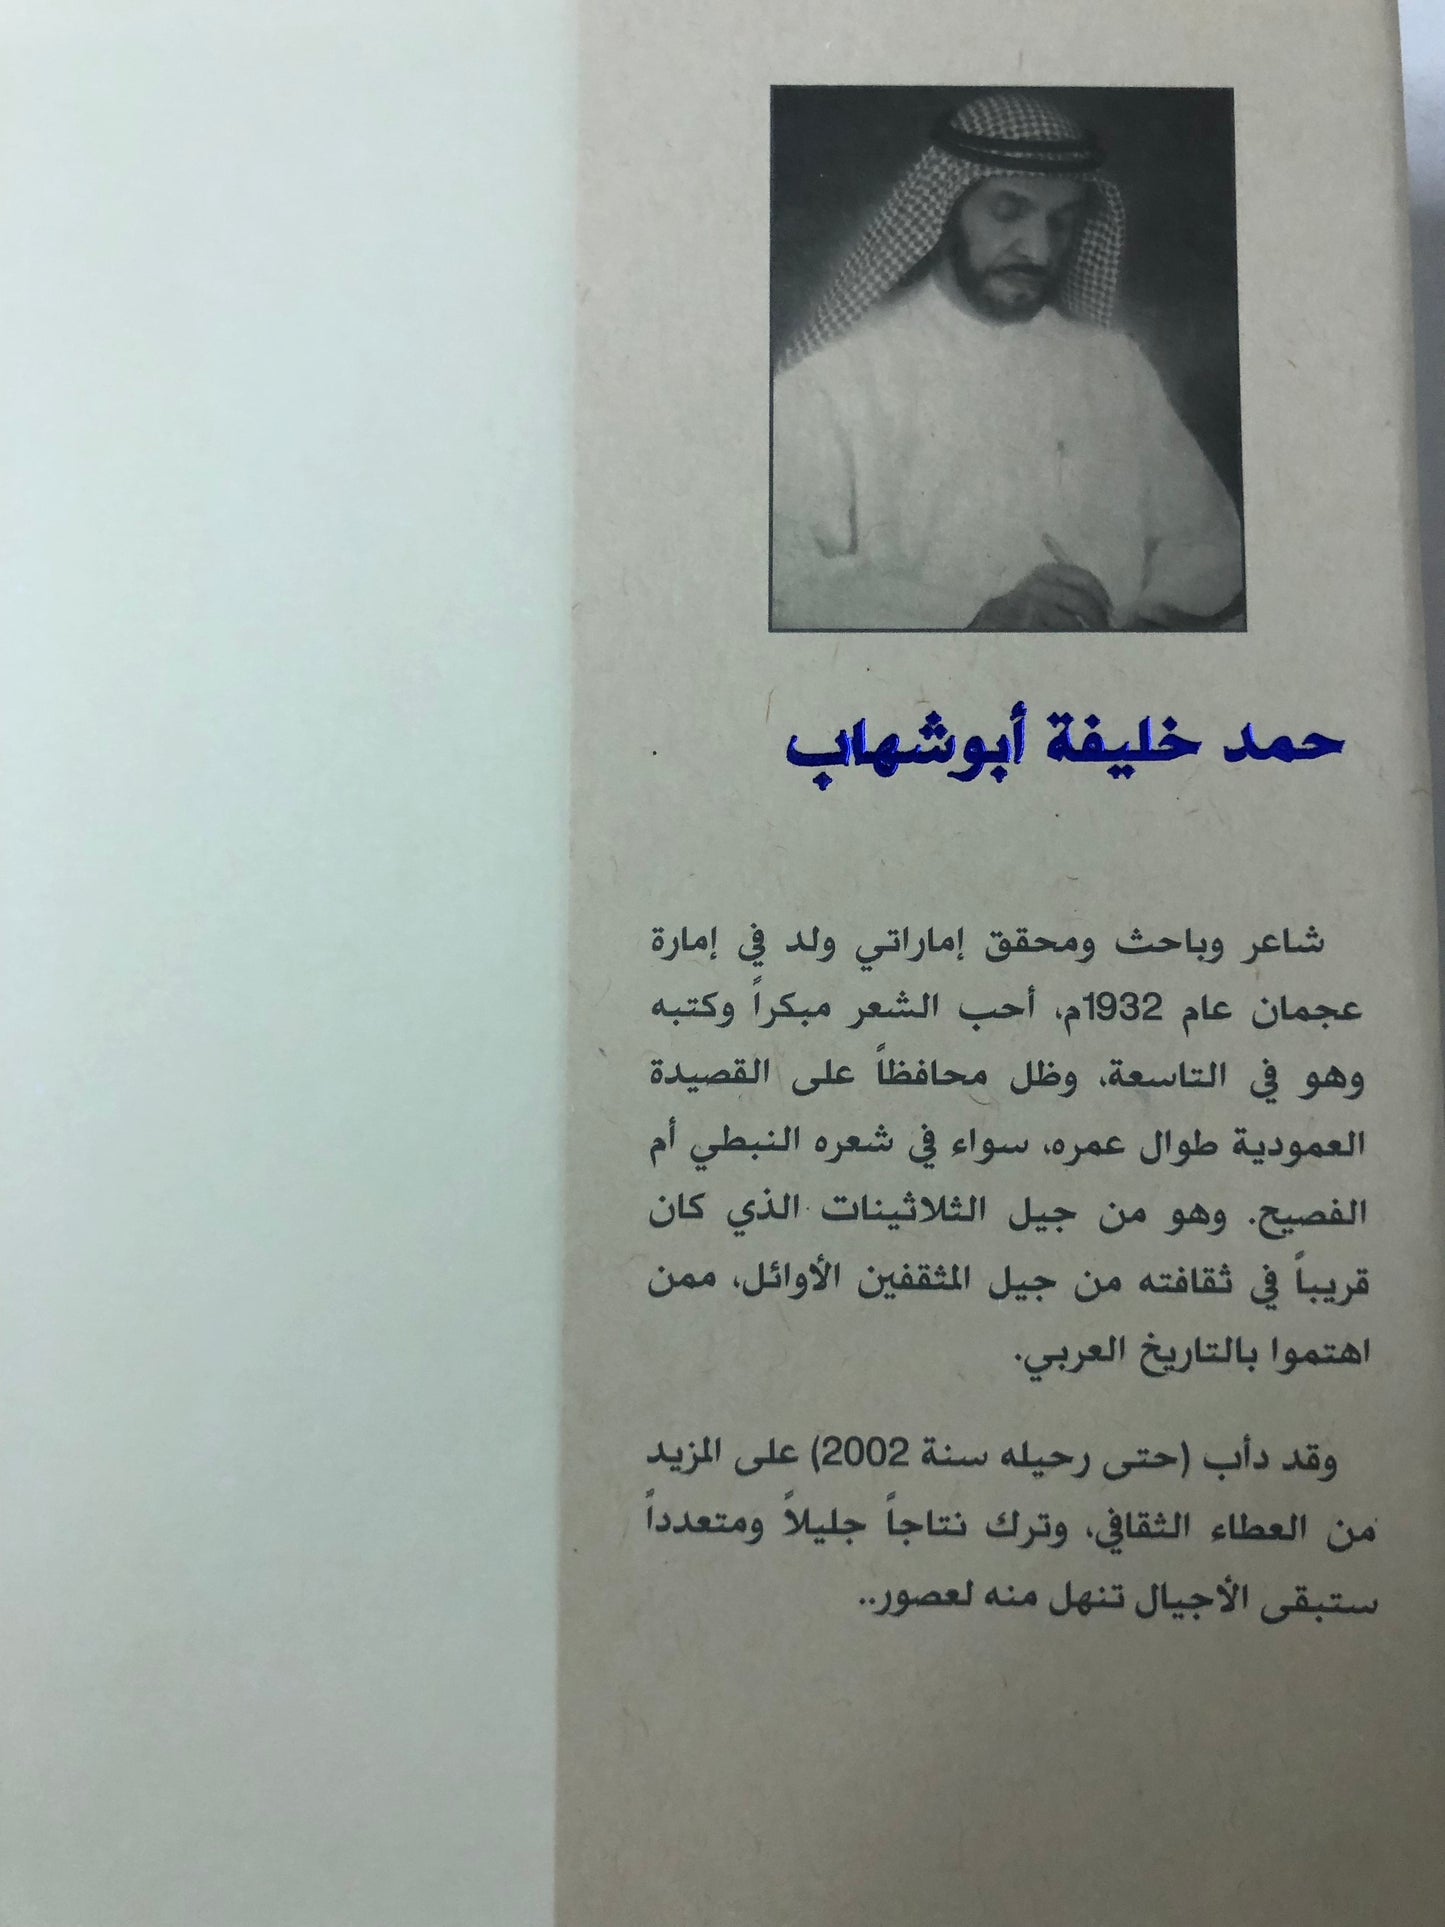 حمد خليفة أبوشهاب
شاعر وباحث ومحقق إماراتي ولد في إمارة
عجمان عام 1932م، أحب الشعر مبكراً وكتبه
وهو في التاسعة، وظل محافظاً على القصيدة
العمودية طوال عمره، سواء في شعره النبطي أم
الفصيح. وهو من جيل الثلاثينات الذي كان
قريباً في ثقافته من جيل المثقفين الأوائل، ممن
اهتموا بالتاريخ العربي.
وقد دأب (حتى رحيله سنة 2002) على المزيد
من العطاء الثقافي، وترك نتاجاً جليلاً ومتعدداً
ستبقى الأجيال تنهل منه لعصور..